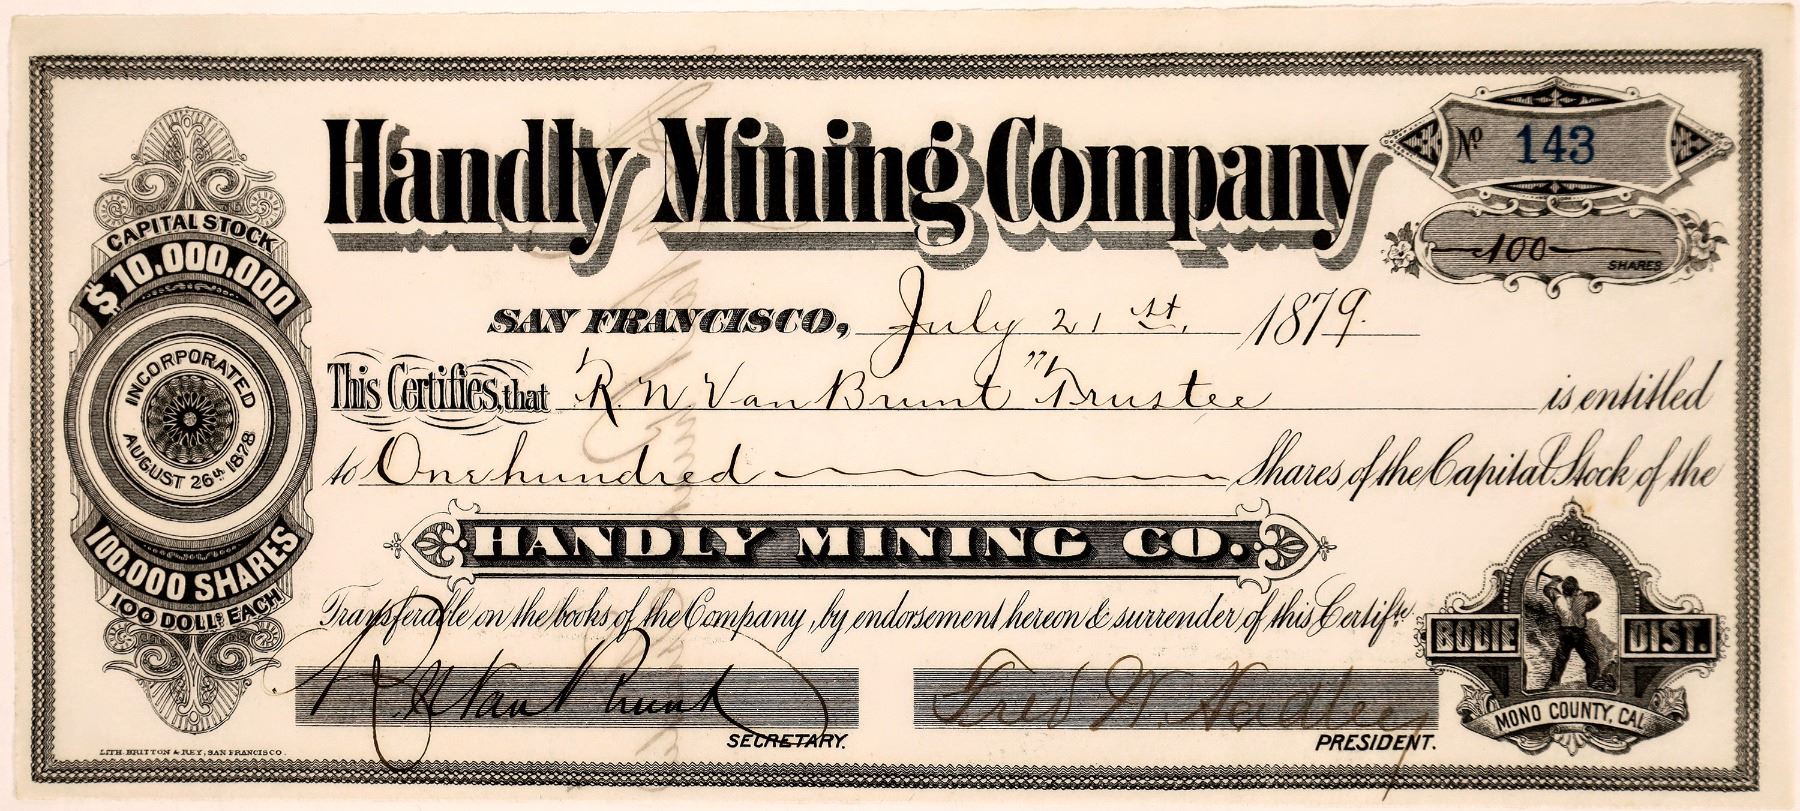 Handly Mining Company
No 143
100 SHARES
CAPITAL STOCK
$10.000.000
INCORPORATED
AUGUST 26th 1878
100.000 SHARES
100 DOLLS EACH
SAN FRANCISCO, July 21st, 1879.
This Certifies, that R. N. Van Brunt "Trustee is entitled
to One hundred Shares of the Capital Stock of the
HANDLY MINING CO.
Transferable on the books of the Company, by endorsement hereon & surrender of this Certifte.
BODIE DIST.
MONO COUNTY, CAL
R. N. Van Brunt
SECRETARY.
Fred W. Hadley
PRESIDENT.
LITH. BRITTON & REY, SAN FRANCISCO.